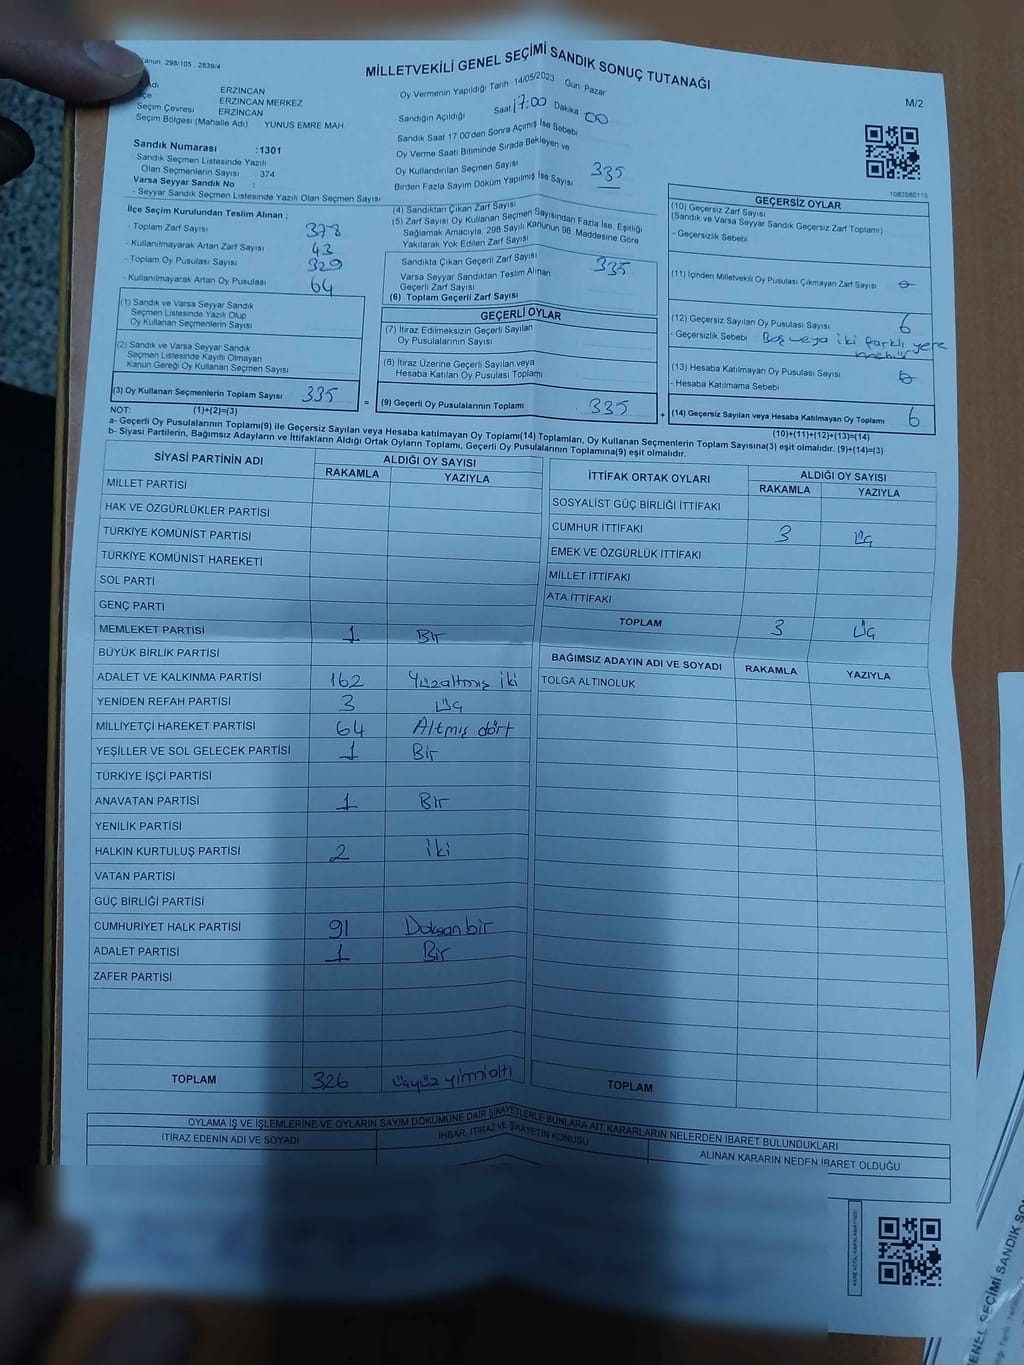 Kanun 298/105 2839/4
MİLLETVEKİLİ GENEL SEÇİMİ SANDIK SONUÇ TUTANAĞI
M/2
ERZİNCAN
ERZİNCAN MERKEZ
Seçim Çevresi ERZİNCAN
Seçim Bölgesi (Mahalle Adı) : YUNUS EMRE MAH
Sandık Numarası :1301
- Sandık Seçmen Listesinde Yazılı
Olan Seçmenlerin Sayısı : 374
Varsa Seyyar Sandık No :
- Seyyar Sandık Seçmen Listesinde Yazılı Olan Seçmen Sayısı
Oy Vermenin Yapıldığı Tarih 14/05/2023 Gün Pazar
Sandığın Açıldığı Saat 17:00 Dakika 00
Sandık Saat 17.00'den Sonra Açılmış İse Sebebi
Oy Verme Saati Bitiminde Sırada Bekleyen ve
Oy Kullandırılan Seçmen Sayısı 335
Birden Fazla Sayım Döküm Yapılmış İse Sayısı
1083580115
İlçe Seçim Kurulundan Teslim Alınan ;
- Toplam Zarf Sayısı 378
- Kullanılmayarak Artan Zarf Sayısı 43
- Toplam Oy Pusulası Sayısı 329
- Kullanılmayarak Artan Oy Pusulası 64
(1) Sandık ve Varsa Seyyar Sandık
Seçmen Listesinde Yazılı Olup
Oy Kullanan Seçmenlerin Sayısı
(2) Sandık ve Varsa Seyyar Sandık
Seçmen Listesinde Kayıtlı Olmayan
Kanun Gereği Oy Kullanan Seçmen Sayısı
(3) Oy Kullanan Seçmenlerin Toplam Sayısı 335
(1)+(2)=(3)
(4) Sandıktan Çıkan Zarf Sayısı
(5) Zarf Sayısı Oy Kullanan Seçmen Sayısından Fazla İse, Eşitliği
Sağlamak Amacıyla, 298 Sayılı Kanunun 98. Maddesine Göre
Yakılarak Yok Edilen Zarf Sayısı
Sandıkta Çıkan Geçerli Zarf Sayısı 335
Varsa Seyyar Sandıktan Teslim Alınan
Geçerli Zarf Sayısı
(6) Toplam Geçerli Zarf Sayısı
GEÇERLİ OYLAR
(7) İtiraz Edilmeksizin Geçerli Sayılan
Oy Pusulalarının Sayısı
(8) İtiraz Üzerine Geçerli Sayılan veya
Hesaba Katılan Oy Pusulası Toplamı
= (9) Geçerli Oy Pusulalarının Toplamı 335
GEÇERSİZ OYLAR
(10) Geçersiz Zarf Sayısı
(Sandık ve Varsa Seyyar Sandık Geçersiz Zarf Toplamı)
- Geçersizlik Sebebi
(11) İçinden Milletvekili Oy Pusulası Çıkmayan Zarf Sayısı
(12) Geçersiz Sayılan Oy Pusulası Sayısı 6
- Geçersizlik Sebebi Boş veya iki farklı yere
mühür
(13) Hesaba Katılmayan Oy Pusulası Sayısı
- Hesaba Katılmama Sebebi
+ (14) Geçersiz Sayılan veya Hesaba Katılmayan Oy Toplamı 6
(10)+(11)+(12)+(13)=(14)
NOT:
a- Geçerli Oy Pusulalarının Toplamı(9) ile Geçersiz Sayılan veya Hesaba katılmayan Oy Toplamı(14) Toplamları, Oy Kullanan Seçmenlerin Toplam Sayısına(3) eşit olmalıdır. (9)+(14)=(3)
b- Siyasi Partilerin, Bağımsız Adayların ve İttifakların Aldığı Ortak Oyların Toplamı, Geçerli Oy Pusulalarının Toplamına(9) eşit olmalıdır.
SİYASİ PARTİNİN ADI ALDIĞI OY SAYISI
RAKAMLA YAZIYLA
MİLLET PARTİSİ
HAK VE ÖZGÜRLÜKLER PARTİSİ
TÜRKİYE KOMÜNİST PARTİSİ
TÜRKİYE KOMÜNİST HAREKETİ
SOL PARTİ
GENÇ PARTİ
MEMLEKET PARTİSİ 1 Bir
BÜYÜK BİRLİK PARTİSİ
ADALET VE KALKINMA PARTİSİ 162 Yüzaltmış iki
YENİDEN REFAH PARTİSİ 3 üç
MİLLİYETÇİ HAREKET PARTİSİ 64 Altmış dört
YEŞİLLER VE SOL GELECEK PARTİSİ 1 Bir
TÜRKİYE İŞÇİ PARTİSİ
ANAVATAN PARTİSİ 1 Bir
YENİLİK PARTİSİ
HALKIN KURTULUŞ PARTİSİ 2 iki
VATAN PARTİSİ
GÜÇ BİRLİĞİ PARTİSİ
CUMHURİYET HALK PARTİSİ 91 Doksanbir
ADALET PARTİSİ 1 Bir
ZAFER PARTİSİ
TOPLAM 326 üçyüz yirmialtı
İTTİFAK ORTAK OYLARI ALDIĞI OY SAYISI
RAKAMLA YAZIYLA
SOSYALİST GÜÇ BİRLİĞİ İTTİFAKI
CUMHUR İTTİFAKI 3 üç
EMEK VE ÖZGÜRLÜK İTTİFAKI
MİLLET İTTİFAKI
ATA İTTİFAKI
TOPLAM 3 üç
BAĞIMSIZ ADAYIN ADI VE SOYADI RAKAMLA YAZIYLA
TOLGA ALTINOLUK
TOPLAM
OYLAMA İŞ VE İŞLEMLERİNE VE OYLARIN SAYIM DÖKÜMÜNE DAİR ŞİKAYETLERLE BUNLARA AİT KARARLARIN NELERDEN İBARET BULUNDUKLARI
İTİRAZ EDENİN ADI VE SOYADI İHBAR, İTİRAZ VE ŞİKAYETİN KONUSU ALINAN KARARIN NEDEN İBARET OLDUĞU